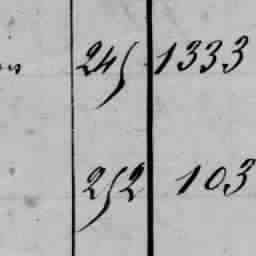 245 1333
252 103